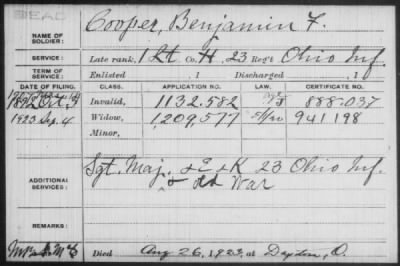 DEAD
NAME OF SOLDIER: Cooper, Benjamin F.
SERVICE: Late rank, 1 Lt Co. H, 23 Reg't Ohio Inf.
TERM OF SERVICE: Enlisted , 1 Discharged , 1
DATE OF FILING. CLASS. APPLICATION NO. LAW. CERTIFICATE NO.
1892 Oct. Invalid, 1132.582 888.037
1923 Sep. 4 Widow, 1,209,577 941198
Minor,
ADDITIONAL SERVICES: Sgt. Maj. & E & K 23 Ohio Inf.
& War
REMARKS:
Died Aug 26, 1923, at Dayton, O.